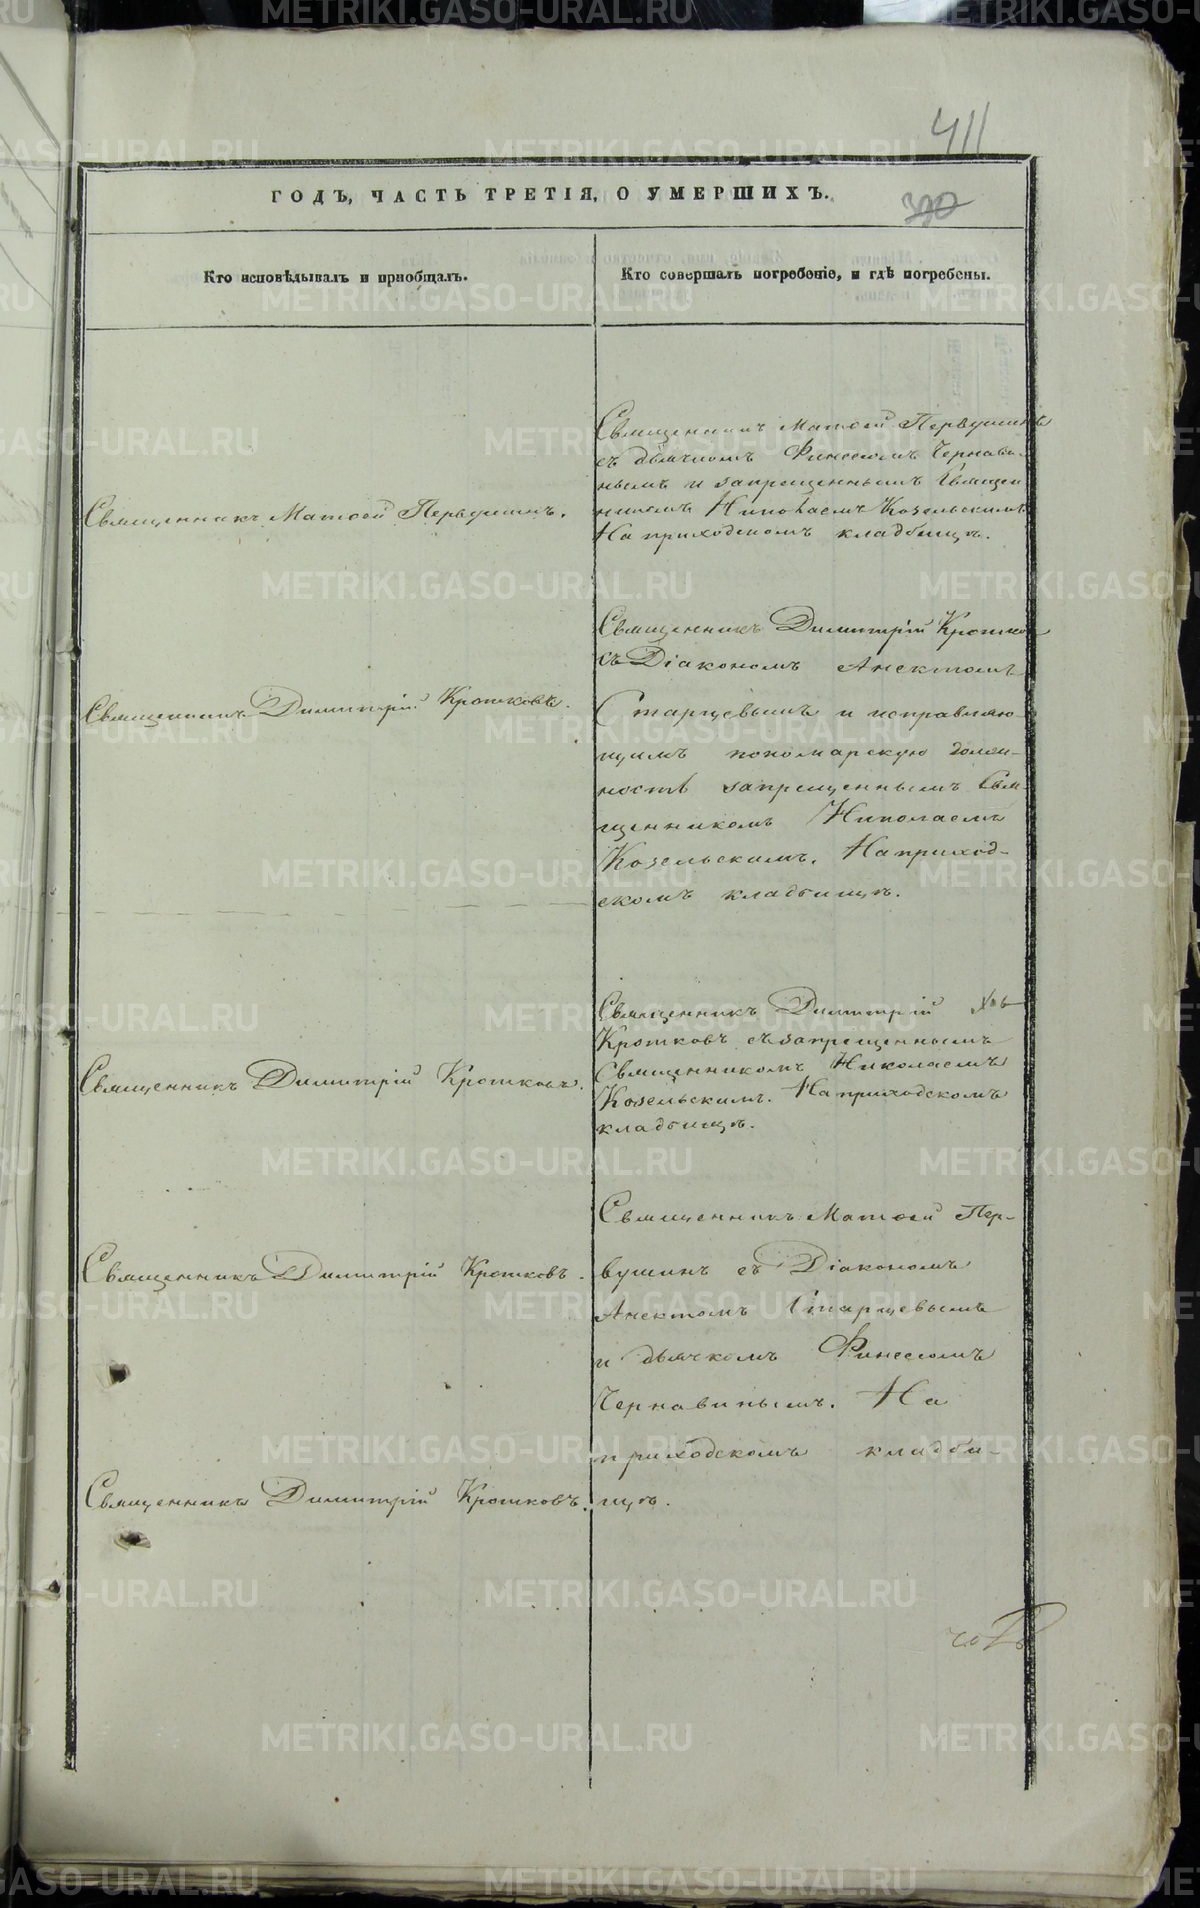 411
ГОДЪ, ЧАСТЬ ТРЕТІЯ, О УМЕРШИХЪ.
390
Кто исповѣдывалъ и пріобщалъ.
Кто совершалъ погребеніе, и гдѣ погребены.
Священникъ Матѳей Первушинъ.
Священникъ Матѳей Первушинъ
съ дьячкомъ Финеесомъ Чернави-
нымъ и запрещеннымъ Священ
никомъ Николаемъ Козельскимъ
На приходскомъ кладбищѣ.
Священникъ Димитрій Кротковъ.
Священникъ Димитрій Кротков
съ Діакономъ Анектомъ
Старцевымъ и исправляю-
щимъ пономарскую долж-
ность запрещеннымъ Свя-
щенникомъ Николаемъ
Козельскимъ. На приход-
скомъ кладбищѣ.
Священникъ Димитрій Кротковъ.
Священникъ Димитрій
Кротковъ съ запрещеннымъ
Священникомъ Николаемъ
Козельскимъ. На приходскомъ
кладбищѣ.
Священникъ Димитрій Кротковъ.
Священникъ Матѳей Пер-
вушинъ съ Діакономъ
Анектомъ Старцевымъ
и дьячкомъ Финеесомъ
Чернавинымъ. На
приходскомъ кладби-
щѣ.
Священникъ Димитрій Кротковъ.
METRIKI.GASO-URAL.RU